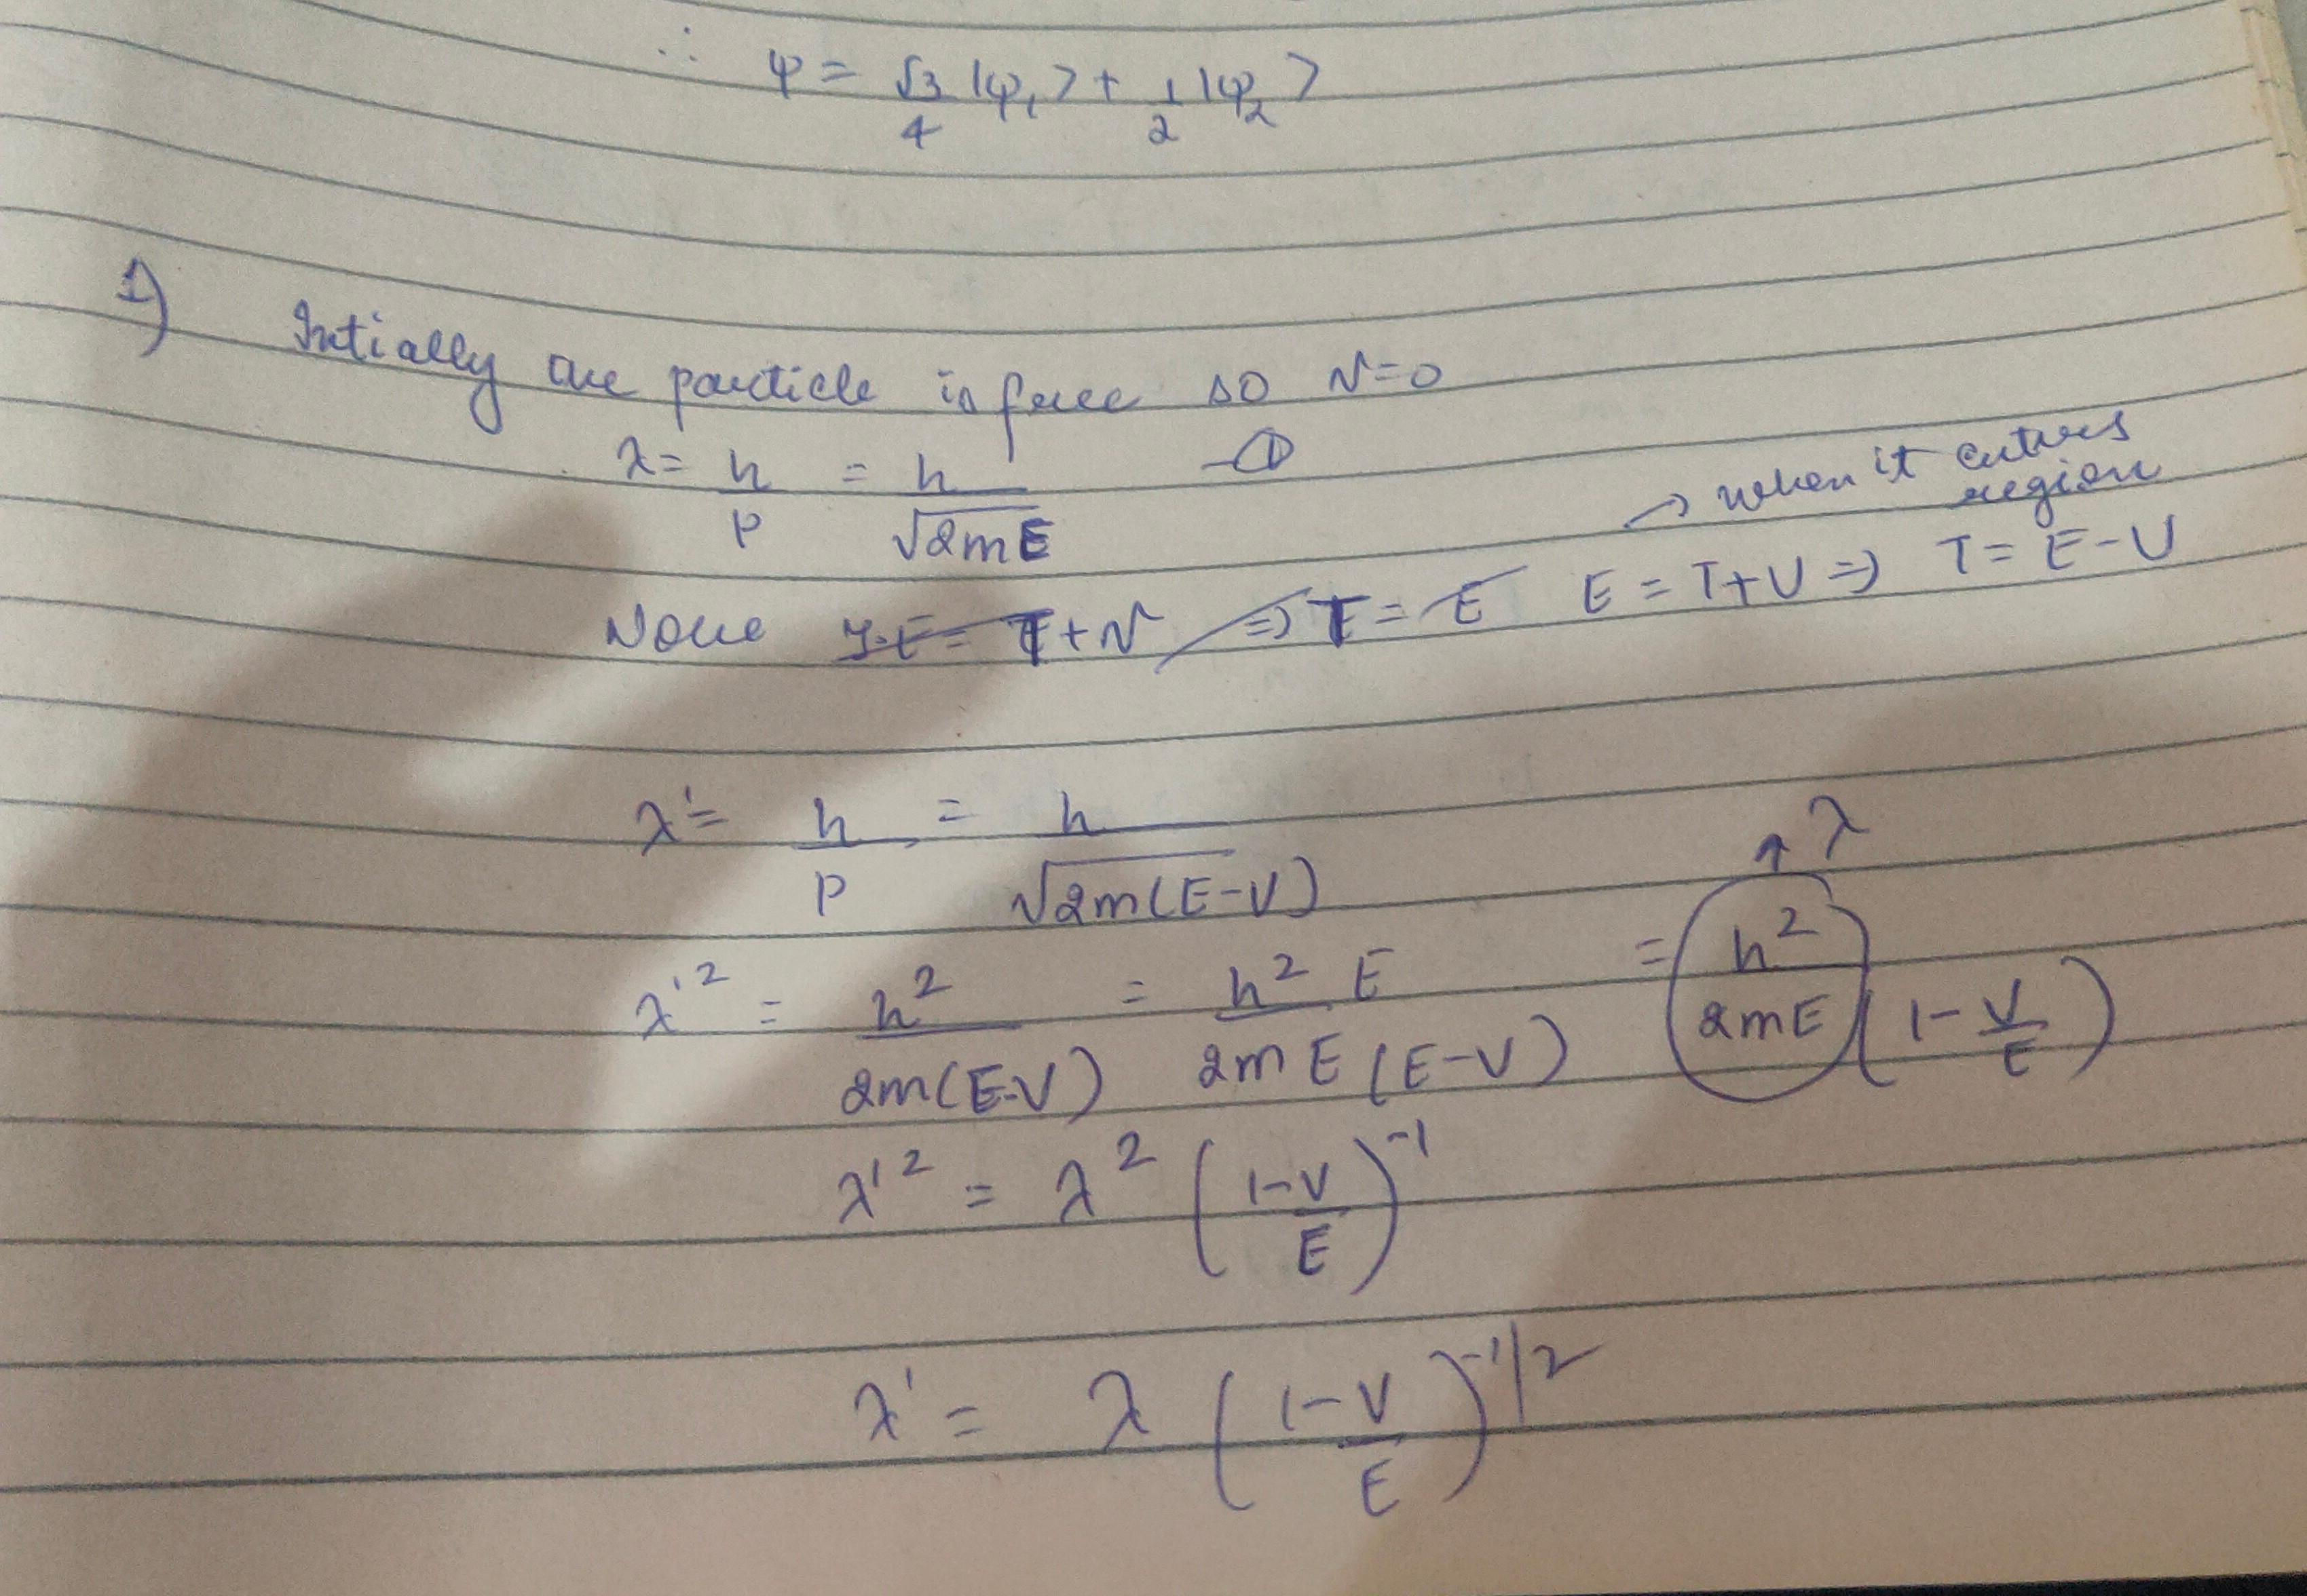 ∴ ψ = √3/4 |φ₁> + 1/2 |φ₂>
1) Intially our particle is free so V=0
λ = h/p = h/√2mE —①
→ when it enters region
Now T.E = T+V ⇒ T = E E = T+V ⇒ T = E-V
λ' = h/p = h/√2m(E-V)
↗ λ
λ'² = h²/2m(E-V) = h² E/2mE(E-V) = h²/2mE (1-V/E)
λ'² = λ² (1-V/E)⁻¹
λ' = λ (1-V/E)^-1/2